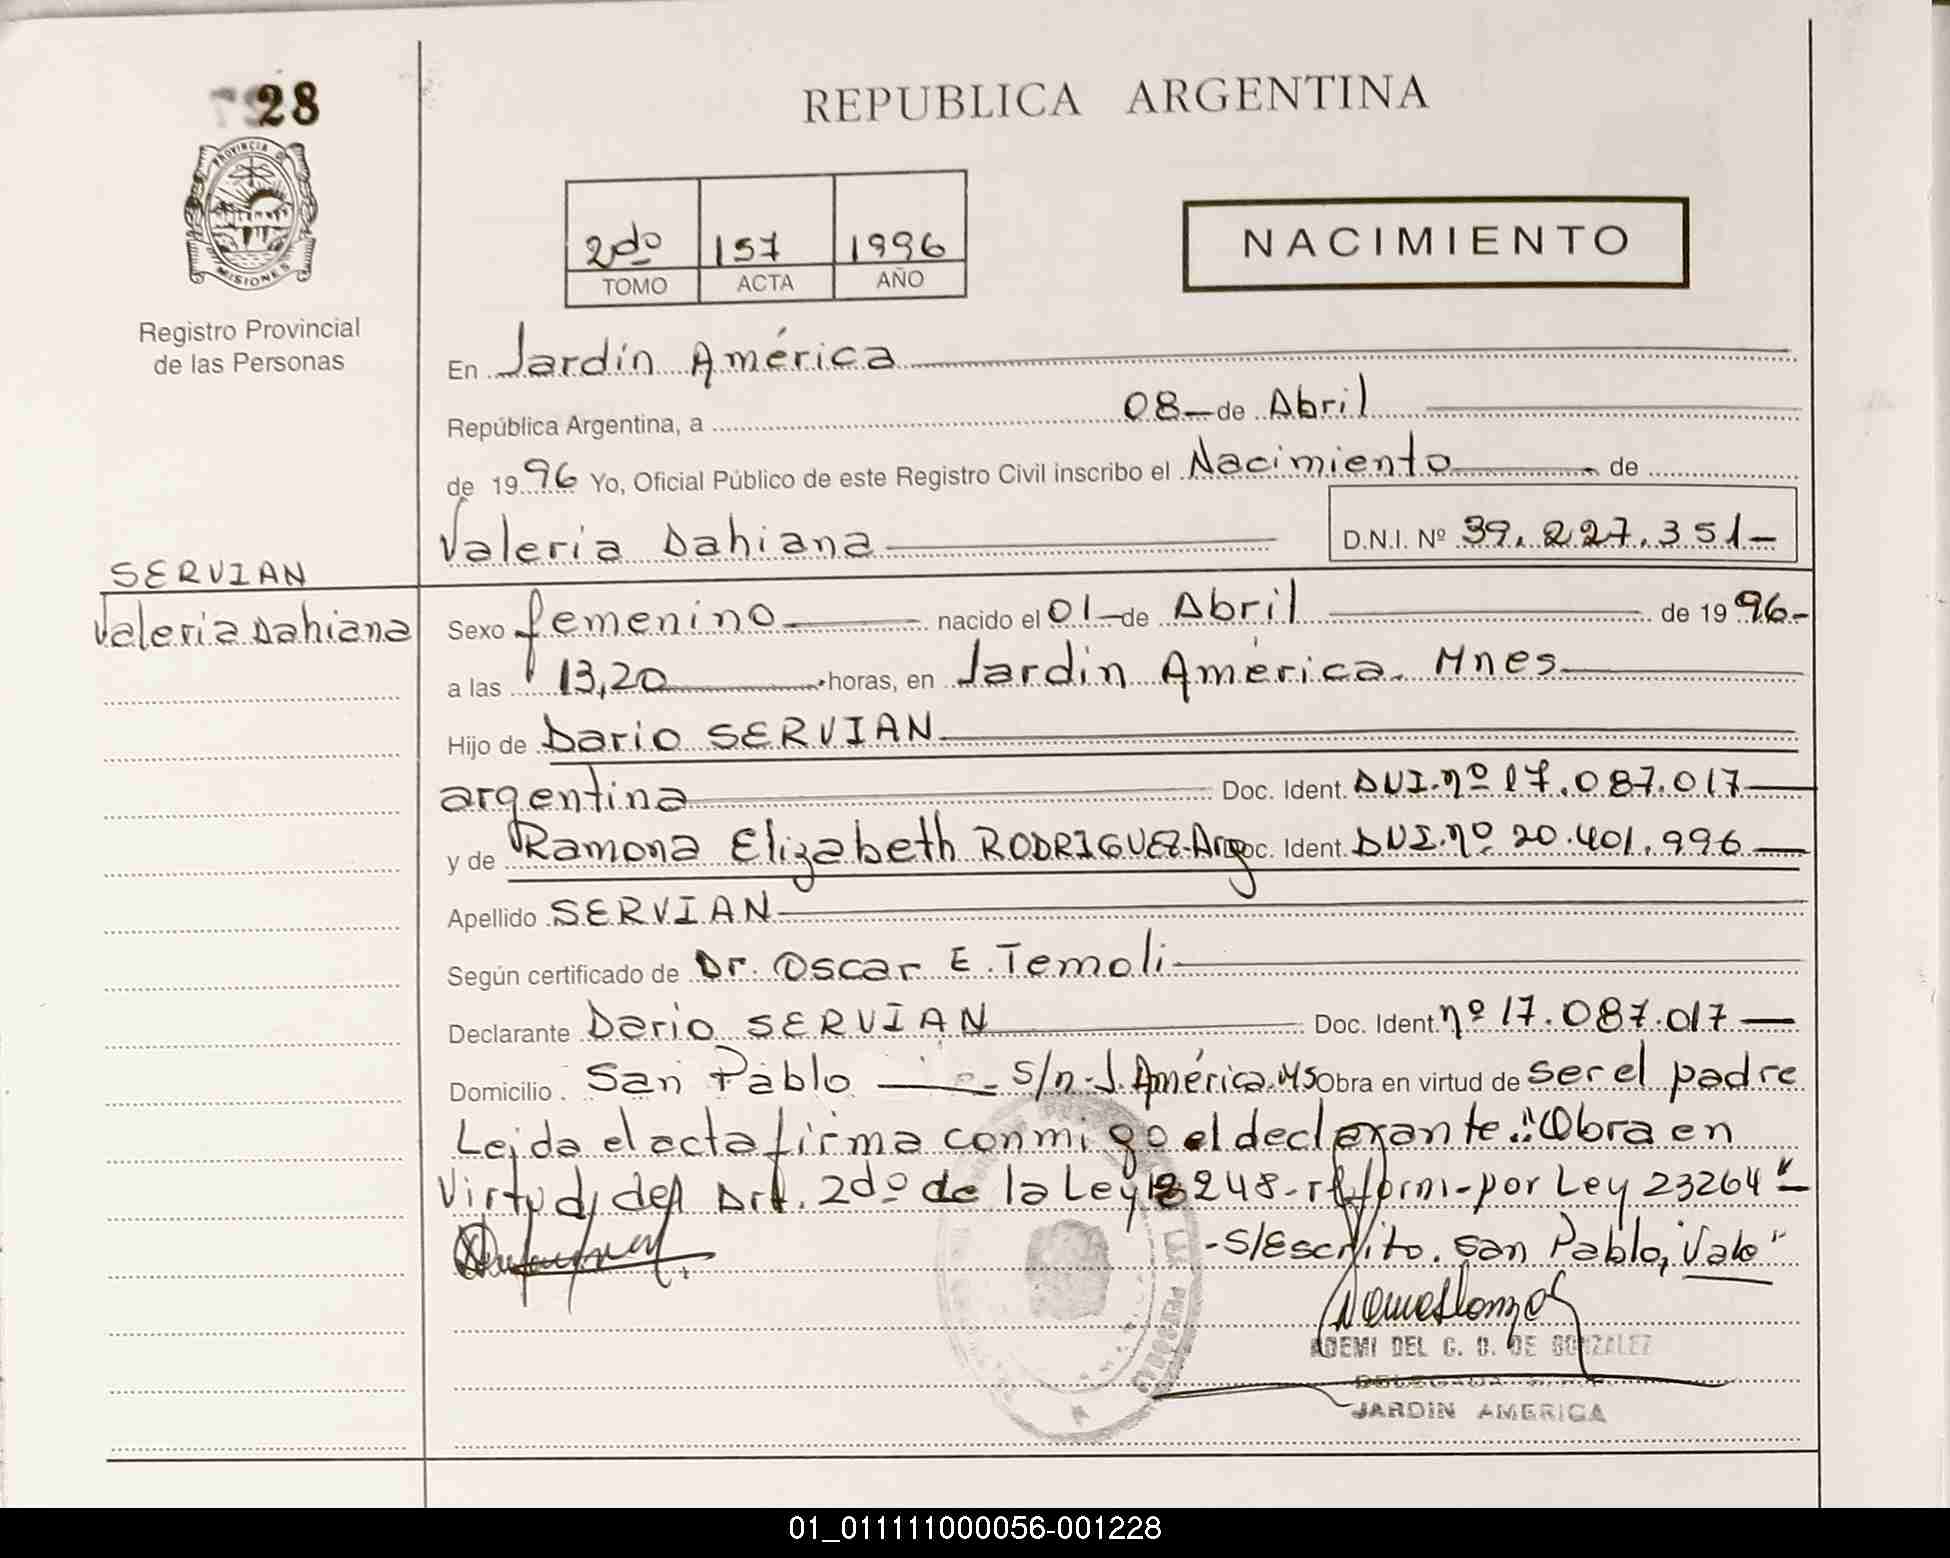 28
PROVINCIA DE
MISIONES
Registro Provincial
de las Personas
REPUBLICA ARGENTINA
2do 157 1996
TOMO ACTA AÑO
NACIMIENTO
En Jardín América
República Argentina, a 08 de Abril
de 1996 Yo, Oficial Público de este Registro Civil inscribo el Nacimiento de
Valeria Dahiana D.N.I. Nº 39.227.351-
SERVIAN
Valeria Dahiana
Sexo femenino nacido el 01 de Abril de 1996-
a las 13,20 horas, en Jardín América. Mnes
Hijo de Dario SERVIAN
argentina Doc. Ident. DUI.nº 17.087.017
y de Ramona Elizabeth RODRIGUEZ-Arg Doc. Ident. DUI.nº 20.401.996
Apellido SERVIAN
Según certificado de Dr. Oscar E. Temoli
Declarante Dario SERVIAN Doc. Ident. nº 17.087.017
Domicilio San Pablo s/n-J.América.MS Obra en virtud de ser el padre
Leida el acta firma conmigo el declarante."Obra en
Virtud del Art. 2do de la Ley 18248-reform-por Ley 23264"
-S/Escrito. San Pablo, Vale"
LAS PERSONAS
NOEMI DEL C. D. DE GONZALEZ
JARDIN AMERICA
01_011111000056-001228